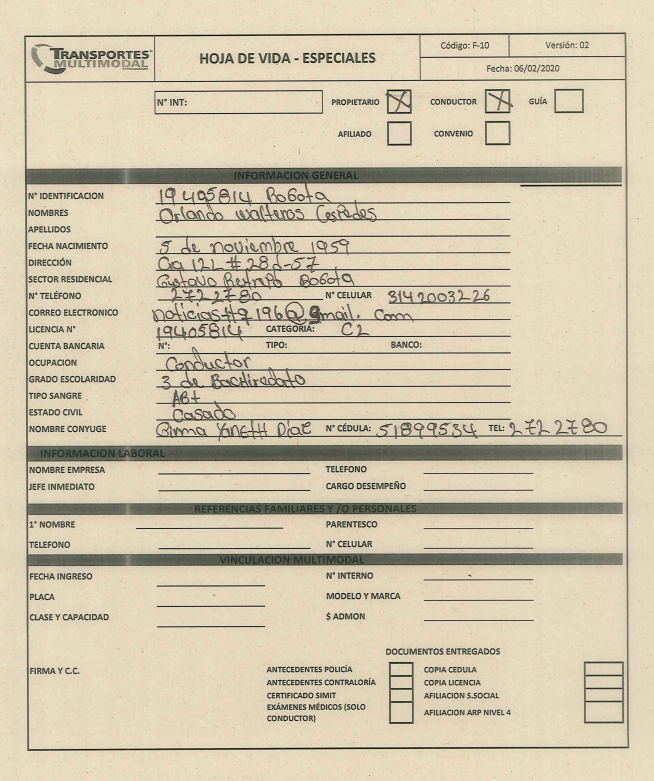 TRANSPORTES
MULTIMODAL
HOJA DE VIDA - ESPECIALES
Código: F-10 Versión: 02
Fecha: 06/02/2020
N° INT: PROPIETARIO X CONDUCTOR X GUÍA
AFILIADO CONVENIO
INFORMACION GENERAL
N° IDENTIFICACION 19405814 Bogota
NOMBRES Orlando walteros Cespedes
APELLIDOS
FECHA NACIMIENTO 5 de noviembre 1959
DIRECCIÓN 12L # 28d-57
SECTOR RESIDENCIAL Gustavo Restrepo Bogota
N° TELÉFONO 2722780 N° CELULAR 3142003226
CORREO ELECTRONICO @gmail. Com
LICENCIA N° 19405814 CATEGORÍA: C2
CUENTA BANCARIA N°: TIPO: BANCO:
OCUPACION Conductor
GRADO ESCOLARIDAD 3 de
TIPO SANGRE AB+
ESTADO CIVIL Casado
NOMBRE CONYUGE YANETH DIAZ N° CÉDULA: 51899534 TEL: 2722780
INFORMACION LABORAL
NOMBRE EMPRESA TELEFONO
JEFE INMEDIATO CARGO DESEMPEÑO
REFERENCIAS FAMILIARES Y /O PERSONALES
1° NOMBRE PARENTESCO
TELEFONO N° CELULAR
VINCULACION MULTIMODAL
FECHA INGRESO N° INTERNO
PLACA MODELO Y MARCA
CLASE Y CAPACIDAD $ ADMON
DOCUMENTOS ENTREGADOS
FIRMA Y C.C. ANTECEDENTES POLICÍA COPIA CEDULA
ANTECEDENTES CONTRALORÍA COPIA LICENCIA
CERTIFICADO SIMIT AFILIACION S.SOCIAL
EXÁMENES MÉDICOS (SOLO CONDUCTOR) AFILIACION ARP NIVEL 4